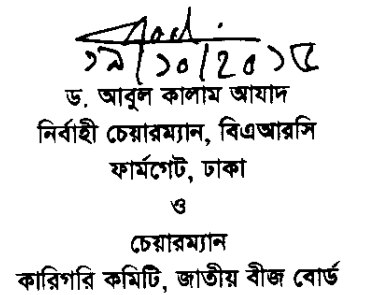 ১৯/১০/2০১৫
ড. আবুল কালাম আযাদ
নির্বাহী চেয়ারম্যান, বিএআরসি
ফার্মগেট, ঢাকা
ও
চেয়ারম্যান
কারিগরি কমিটি, জাতীয় বীজ বোর্ড